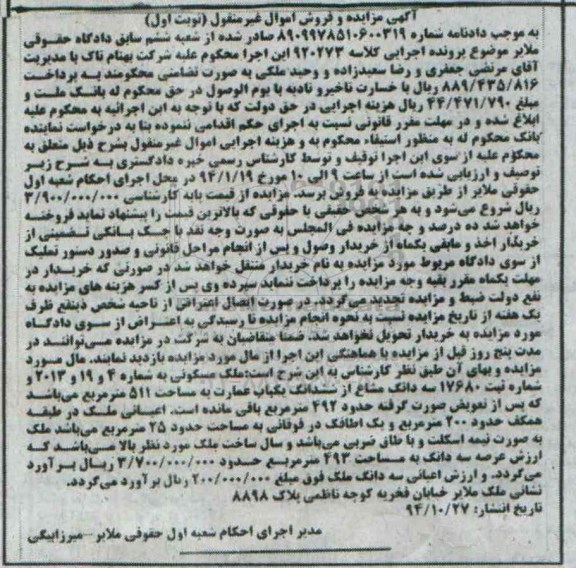 آگهی مزایده و فروش اموال غیرمنقول (نوبت اول)
به موجب دادنامه شماره ۸۹۰۹۹۷۸۵۱۰۶۰۰۳۱۹ صادر شده از شعبه ششم سابق دادگاه حقوقی
ملایر موضوع پرونده اجرایی کلاسه ۹۲۰۲۷۳ این اجرا محکوم علیه شرکت بهنام تاک با مدیریت
آقای مرتضی جعفری و رضا سعیدزاده و وحید ملکی به صورت تضامنی محکومند به پرداخت
۸۸۹/۴۳۵/۸۱۶ ریال با خسارت تاخیرو تادیه تا یوم الوصول در حق محکوم له بانک ملت و
مبلغ ۴۴/۴۷۱/۷۹۰ ریال هزینه اجرایی در حق دولت که با توجه به این اجرائیه به محکوم علیه
ابلاغ شده و در مهلت مقرر قانونی نسبت به اجرای حکم اقدامی ننموده بنا به درخواست نماینده
بانک محکوم له به منظور استیفاء محکوم به و هزینه اجرایی اموال غیرمنقول بشرح ذیل متعلق به
محکوم علیه از سوی این اجرا توقیف و توسط کارشناس رسمی خبره دادگستری به شرح زیر
توصیف و ارزیابی شده است از ساعت ۹ الی ۱۰ مورخ ۹۴/۱/۱۹ در محل اجرای احکام شعبه اول
حقوقی ملایر از طریق مزایده به فروش برسد. مزایده از قیمت پایه کارشناسی ۳/۹۰۰/۰۰۰/۰۰۰
ریال شروع می‌شود و به هر شخص حقیقی یا حقوقی که بالاترین قیمت را پیشنهاد نماید فروخته
خواهد شد ده درصد و جه مزایده فی المجلس به صورت وجه نقد یا چک بانکی تضمینی از
خریدار اخذ و مابقی یکماه از خریدار وصول و پس از انجام مراحل قانونی و صدور دستور تملیک
از سوی دادگاه مربوط مورد مزایده به نام خریدار منتقل خواهد شد در صورتی که خریدار در
مهلت یکماه مقرر بقیه وجه مزایده را پرداخت ننماید سپرده وی پس از کسر هزینه های مزایده به
نفع دولت ضبط و مزایده تجدید می‌گردد. در صورت ایصال اعتراض از ناحیه شخص ذینفع ظرف
یک هفته از تاریخ مزایده نسبت به نحوه انجام مزایده تا رسیدگی به اعتراض از سوی دادگاه
مورد مزایده به خریدار تحویل نخواهد شد. ضمنا متقاضیان به شرکت در مزایده می‌توانند در
مدت پنج روز قبل از مزایده با هماهنگی این اجرا از مال مورد مزایده بازدید نمایند. مال مورد
مزایده و بهای آن طبق نظر کارشناس به این شرح است:ملک مسکونی به شماره ۴ و ۱۹ و ۲۰۱۳ و
شماره ثبت ۱۷۶۸۰ سه دانگ مشاع از ششدانگ یکباب عمارت به مساحت ۵۱۱ مترمربع می‌باشد
که پس از تعویض صورت گرفته حدود ۴۹۲ مترمربع باقی مانده است. اعیانی ملک در طبقه
همکف حدود ۲۰۰ مترمربع و یک اطاقک در فوقانی به مساحت حدود ۲۵ مترمربع می‌باشد ملک
به صورت نیمه اسکلت و با طاق ضربی می‌باشد و سال ساخت ملک مورد نظر بالا می‌باشد که
ارزش عرصه سه دانگ به مساحت ۴۹۳ مترمربع حدود ۳/۷۰۰/۰۰۰/۰۰۰ ریال برآورد
می‌گردد. و ارزش اعیانی سه دانگ ملک فوق مبلغ ۲۰۰/۰۰۰/۰۰۰ ریال برآورد می‌گردد.
نشانی ملک ملایر خیابان فخریه کوچه ناظمی پلاک ۸۸۹۸
تاریخ انتشار: ۹۴/۱۰/۲۷
مدیر اجرای احکام شعبه اول حقوقی ملایر - میرزابیگی